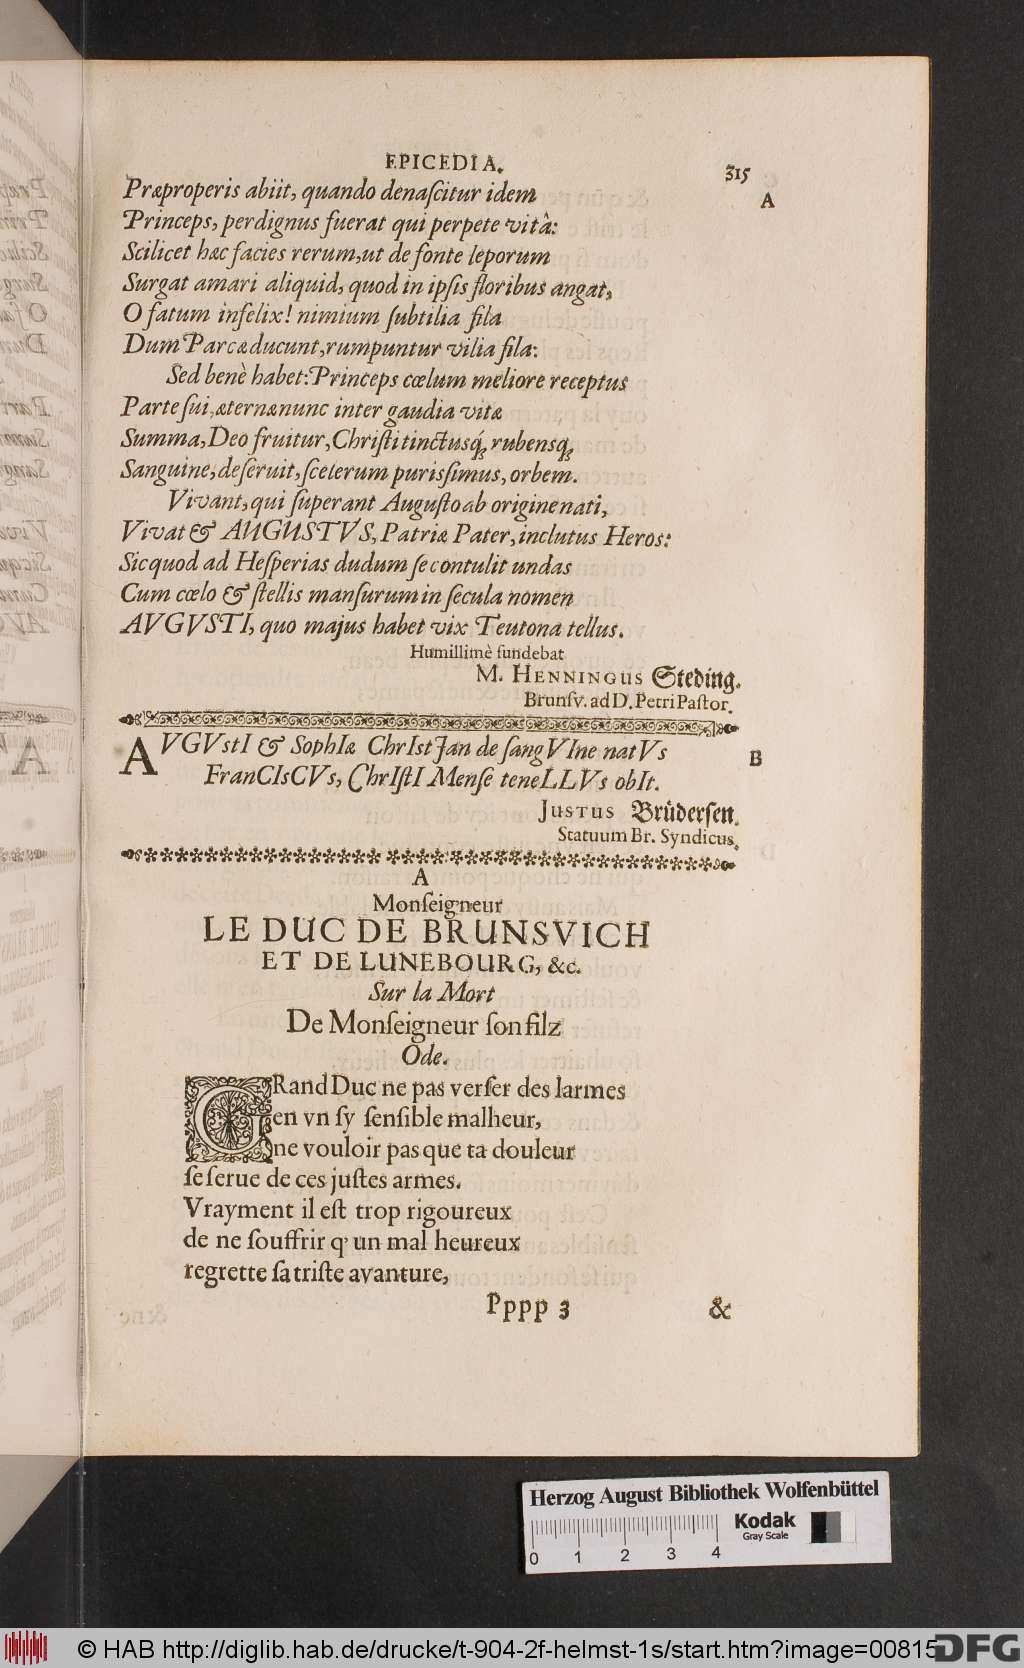 EPICEDIA. 315
Præproperis abiit, quando denaſcitur idem
A
Princeps, perdignus fuerat qui perpete vitâ:
Scilicet hæc facies rerum, ut de fonte leporum
Surgat amari aliquid, quod in ipſis floribus angat,
O fatum infelix! nimium ſubtilia fila
Dum Parcæ ducunt, rumpuntur vilia fila:
Sed benè habet: Princeps cœlum meliore receptus
Parte ſui, æternæ nunc inter gaudia vitæ
Summa, Deo fruitur, Chriſti tinctusq́; rubensq;
Sanguine, deſeruit, ſcelerum purisſimus, orbem.
Vivant, qui ſuperant Auguſto ab origine nati,
Vivat & AUGUSTVS, Patriæ Pater, inclutus Heros:
Sic quod ad Heſperias dudum ſe contulit undas
Cum cœlo & ſtellis manſurum in ſecula nomen
AVGVSTI, quo majus habet vix Teutona tellus.
Humillimè fundebat
M. HENNINGUS Steding.
Brunſv. ad D. Petri Paſtor.
AVGVstI & SophIæ ChrIstJan de ſangVIne natVs
B
FranCIsCVs, ChrIſtI Menſe teneLLVs obIt.
JUSTUS Brüderſen.
Statuum Br. Syndicus.
A
Monſeigneur
LE DUC DE BRUNSVICH
ET DE LUNEBOURG, &c.
Sur la Mort
De Monſeigneur ſon filz
Ode.
GRand Duc ne pas verſer des larmes
en vn ſy ſenſible malheur,
ne vouloir pas que ta douleur
ſe ſerue de ces juſtes armes.
Vrayment il eſt trop rigoureux
de ne ſouffrir q' un mal heureux
regrette ſa triſte avanture,
Pppp 3 &
Herzog August Bibliothek Wolfenbüttel
Kodak
Gray Scale
0 1 2 3 4
© HAB http://diglib.hab.de/drucke/t-904-2f-helmst-1s/start.htm?image=00815
DFG